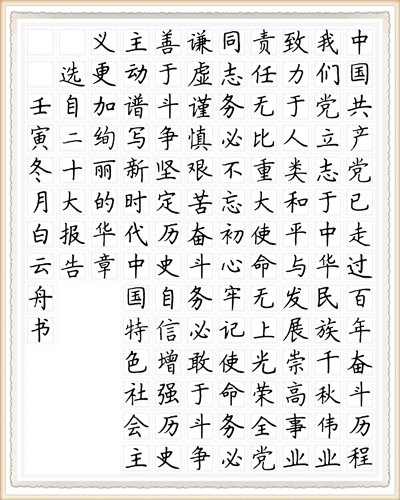 中国共产党已走过百年奋斗历程
我们党立志于中华民族千秋伟业
致力于人类和平与发展崇高事业
责任无比重大使命无上光荣全党
同志务必不忘初心牢记使命务必
谦虚谨慎艰苦奋斗务必敢于斗争
善于斗争坚定历史自信增强历史
主动谱写新时代中国特色社会主
义更加绚丽的华章
选自二十大报告
壬寅冬月白云舟书